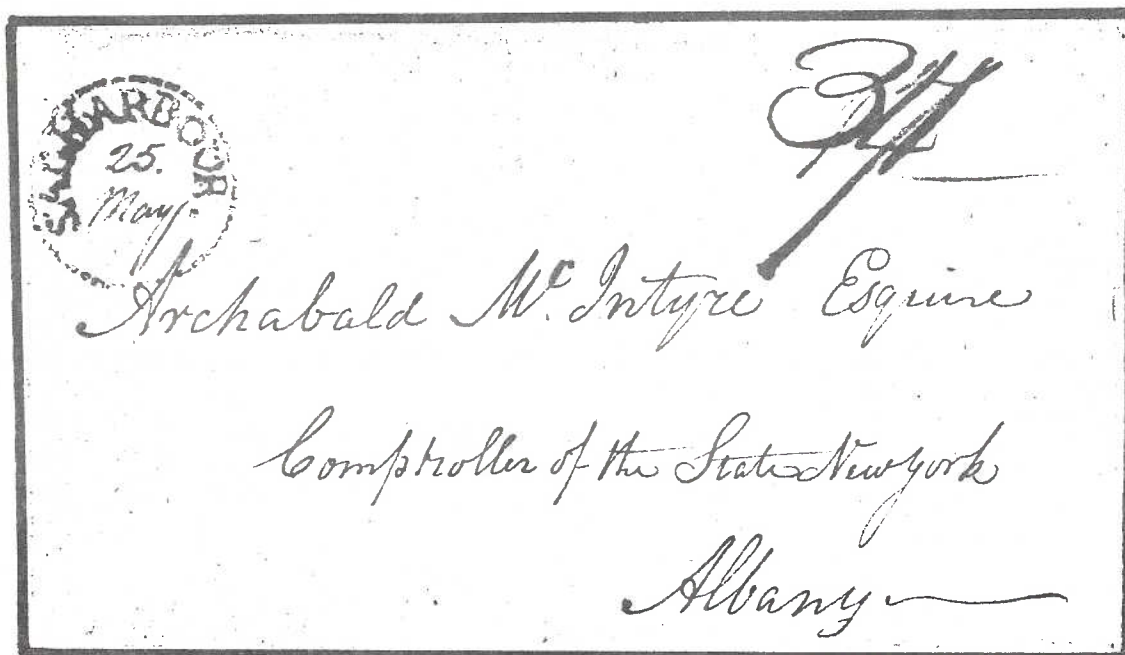 SAG HARBOUR
25.
May
34
Archabald Mc. Intyre Esquire
Comptroller of the State New york
Albany